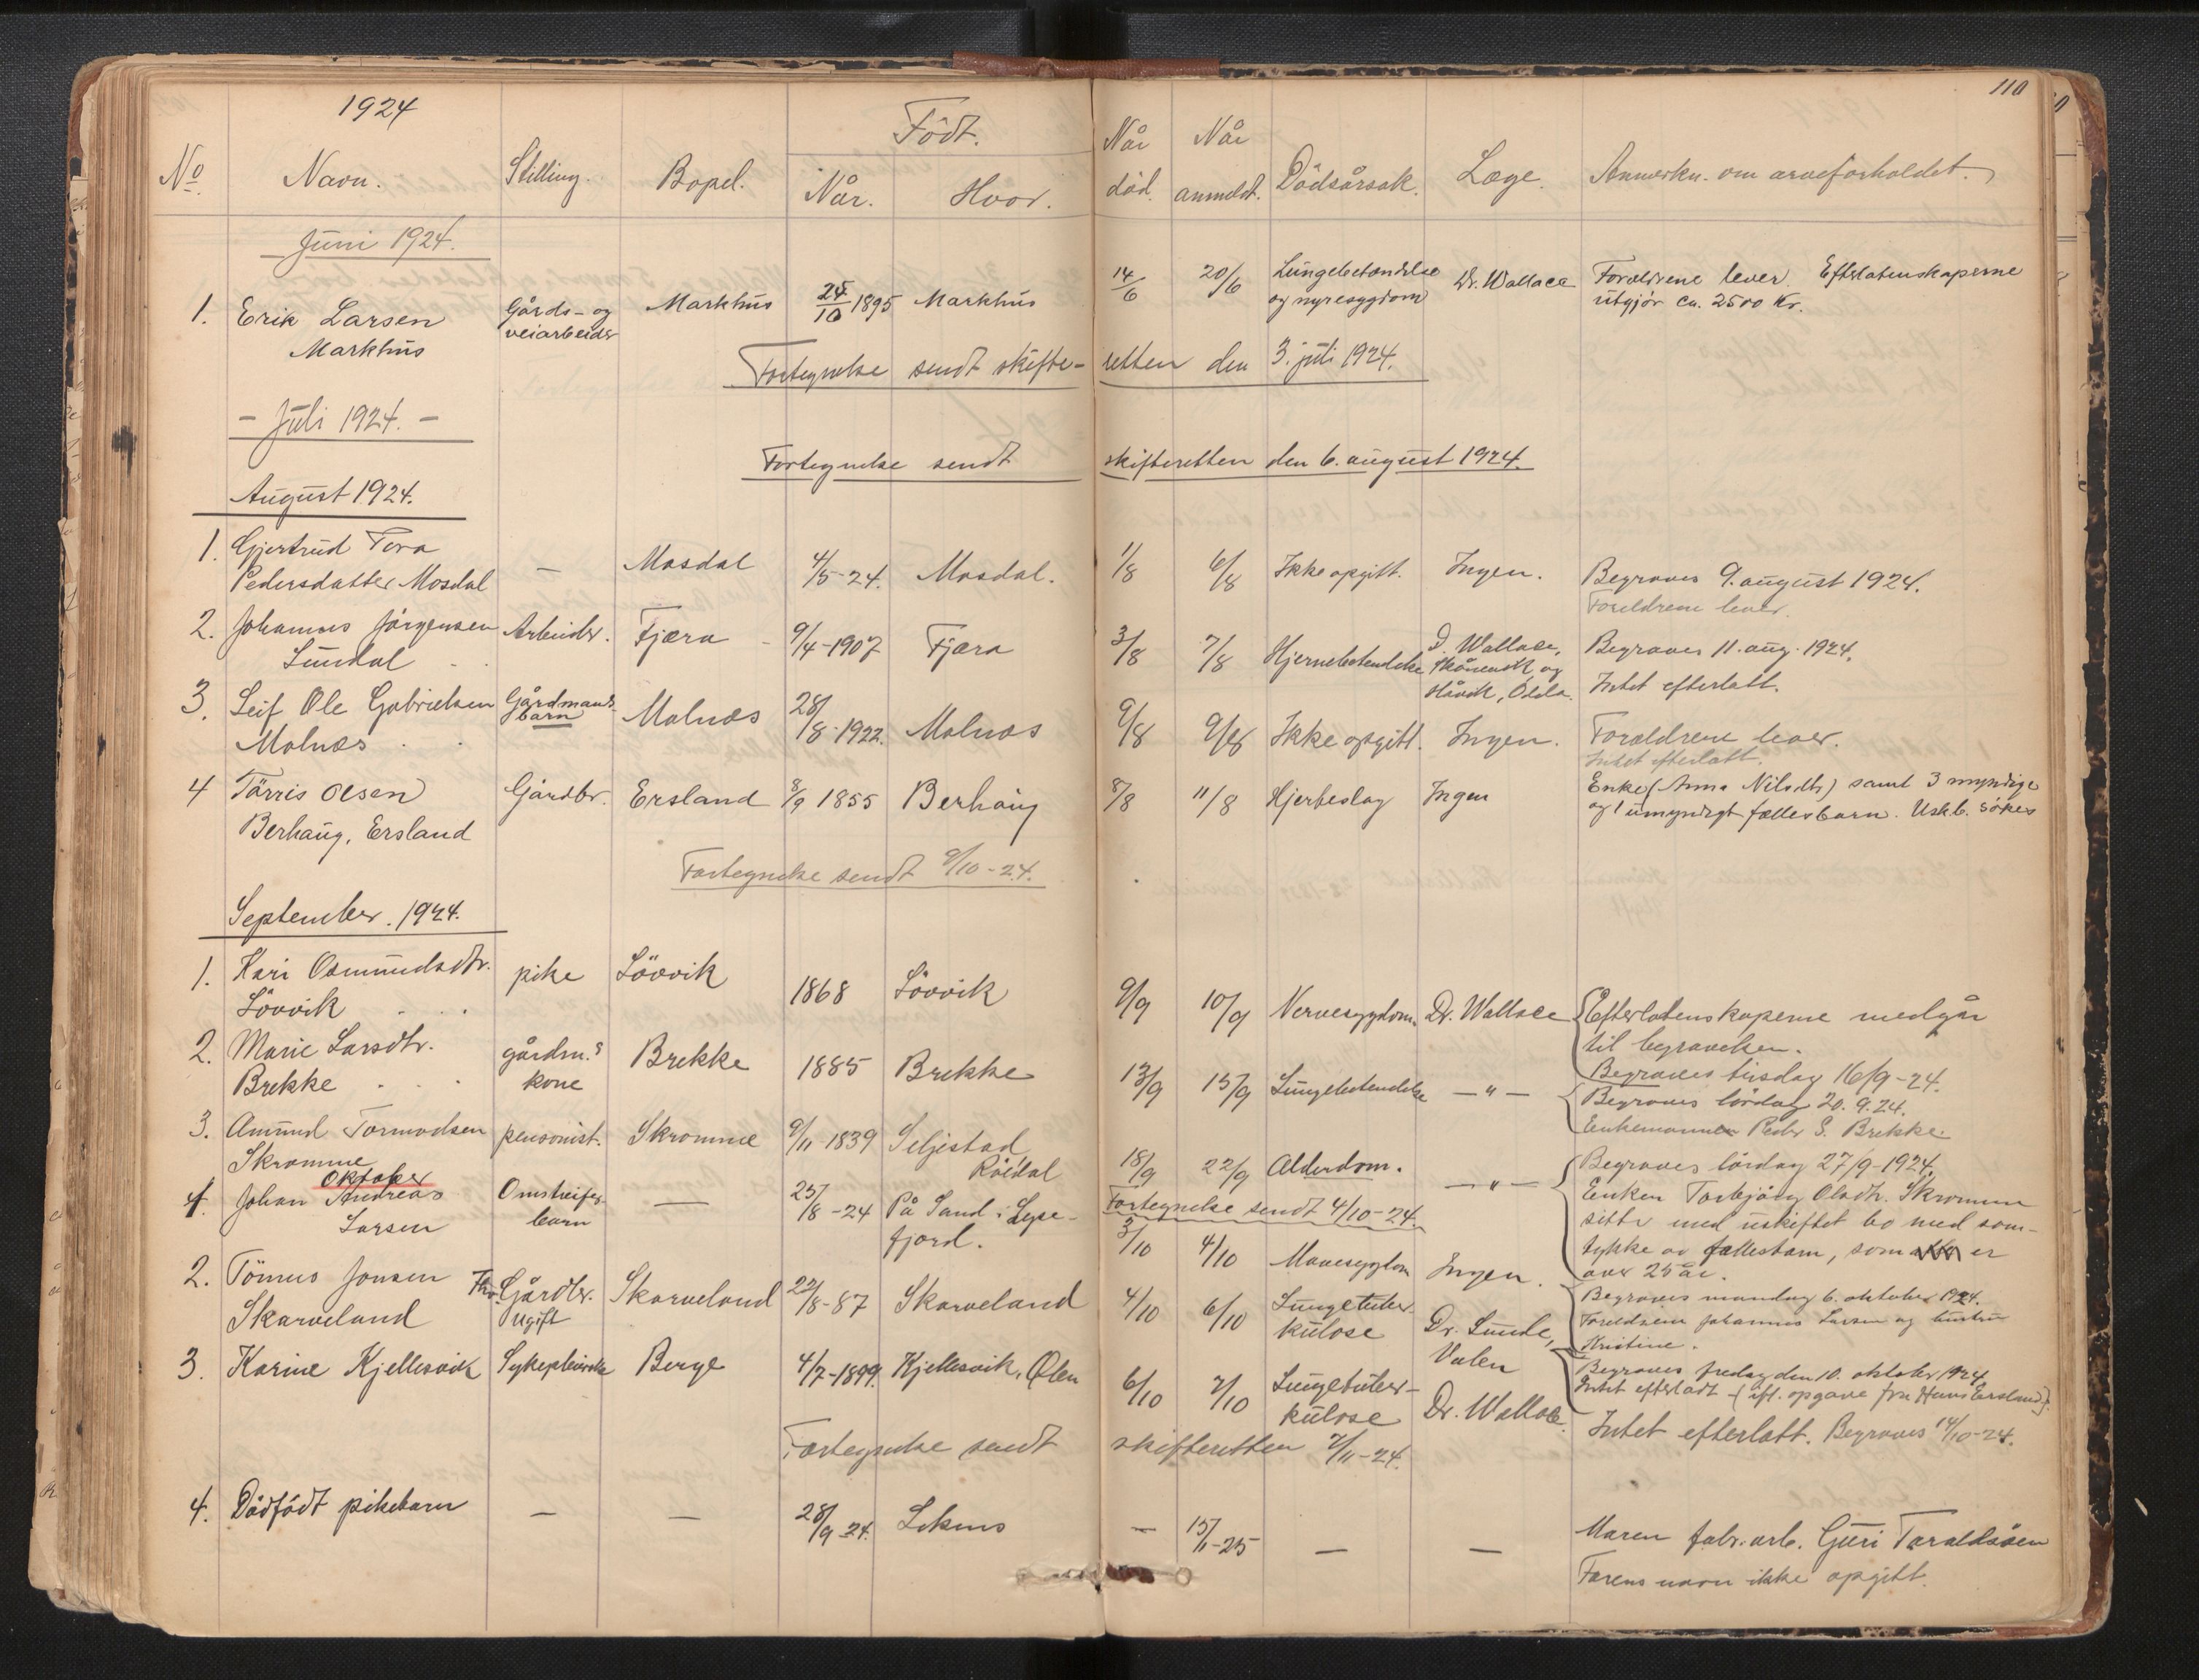 1924
110
Född.
No
Navn.
Stilling.
Bopel.
Når.
Hvor.
Når död.
Når anmeldt.
Dödsårsak.
Læge.
Anmerkn. om arveforholdet.
Juni 1924.
1. Erik Larsen Gårds- og Markhus 25/10 1895 Markhus 14/6 20/6 Lungebetændelse Dr. Wallace Forældrene lever. Efterlatenskaperne
Markhus veiarbeider og nyresygdom utgjör ca. 2500 Kr.
Fortegnelse sendt skifte- retten den 3. juli 1924.
- Juli 1924. -
Fortegnelse sendt skifteretten den 6. august 1924.
August 1924.
1. Gjertrud Tora — Mosdal 4/5-24. Mosdal. 1/8 6/8 Ikke opgitt. Ingen. Begraves 9. august 1924.
Pedersdatter Mosdal Foreldrene lever.
2. Johannes Jörgensen Arbeider. Fjæra 9/4-1907 Fjæra 3/8 7/8 Hjernebetendelse D. Wallace, Begraves 11. aug. 1924.
Sundal og Odda. Intet efterlatt.
3. Leif Ole Gabrielsen Gårdmands- Molnes 28/8-1922. Molnes 9/8 9/8 Ikke opgitt. Ingen. Forældrene lever.
Molnes barn Intet efterlatt.
4 Törris Olsen Gårdbr. Ersland 8/9 1855 Berhaug 8/8 11/8 Hjerteslag Ingen Enke (Anna Nilsdtr) samt 3 myndige
Berhaug, Ersland og 1 umyndigt fællesbarn. Usk.b. sökes
Fortegnelse sendt 9/10-24.
September. 1924.
1. Kari Osmundsdtr. pike Lövvik 1868 Lövvik 9/9 10/9 Nervesygdom. Dr. Wallace Efterlatenskaperne medgår
Lövvik til begravelsen.
Begraves tirsdag 16/9-24.
2. Marie Larsdtr. gårdm.s Brekke 1885 Brekke 13/9 15/9 Lungebetendelse —"— Begraves lördag 20.9.24.
Brekke kone Enkemannen Peder S. Brekke.
3. Amund Tormodsen pensonist. Skromme 9/11-1839 Seljestad 18/9 22/9 Alderdom. —"— Begraves lördag 27/9-1924.
Skromme Röldal Enken Torbjörg Olsdtr. Skromme
Fortegnelse sendt 4/10-24. sitter med uskiftet bo med sam-
tykke av fællesbarn, som er
over 25 år.
Oktober
1. Johan Andreas Omstreifer- — 25/8-24 På Sand i Lyse- 3/10 4/10 Mavesygdom Ingen. Begraves mandag 6. oktober 1924.
Larsen barn fjord. Foreldrene Johannes Larsen og hustru
Kristine.
2. Tönnes Jonsen Gårdbr. Skarveland 22/8-87 Skarveland 4/10 6/10 Lungetuber- Dr. Sunde, Begraves fredag den 10. oktober 1924
Skarveland Ugift kulose Valen Intet efterladt - (ift. opgave fra Hans Ersland).
3. Karine Kjellesvik Sykepleierske Berge 4/7-1899. Kjellesvik, Ølen 6/10 7/10 Lungetuber- Dr. Wallace Intet efterlatt. Begraves 14/10-24.
kulose
Fortegnelse sendt skifteretten 7/11-24.
4. Dödfödt pikebarn — — 28/9-24. — 15/1-25 — — Moren fabr.arb. Guri Taraldsöen
Farens navn ikke opgitt.